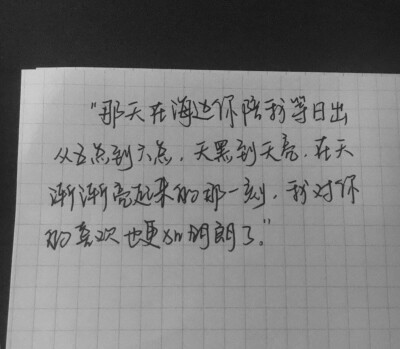 “那天在海边你陪我等日出
从五点到六点，天黑到天亮，在天
渐渐亮起来的那一刻，我对你
的喜欢也更加明朗了。”